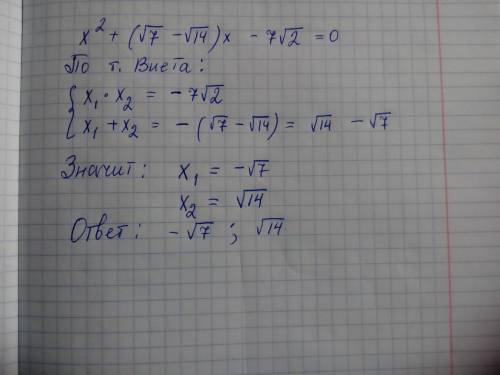 x² + (√7 - √14)x - 7√2 = 0
По т. Виета:
{ x₁ · x₂ = - 7√2
x₁ + x₂ = - (√7 - √14) = √14 - √7
Значит: x₁ = -√7
x₂ = √14
Ответ: -√7 ; √14